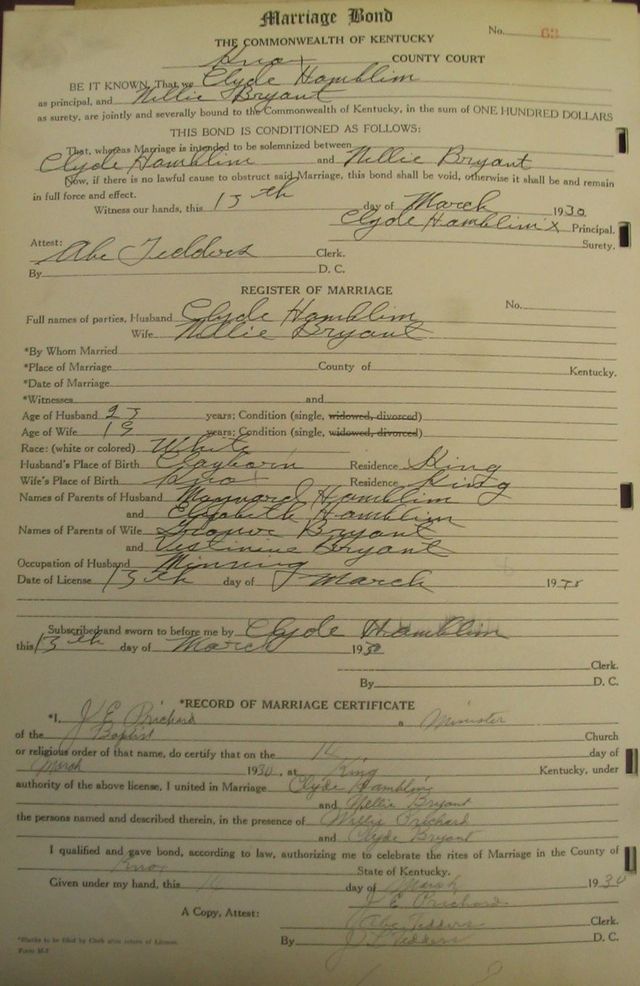 Marriage Bond
No. 63
THE COMMONWEALTH OF KENTUCKY
Knox COUNTY COURT
BE IT KNOWN, That we Clyde Hamblim
as principal, and Nellie Bryant
as surety, are jointly and severally bound to the Commonwealth of Kentucky, in the sum of ONE HUNDRED DOLLARS
THIS BOND IS CONDITIONED AS FOLLOWS:
That, whereas Marriage is intended to be solemnized between
Clyde Hamblim and Nellie Bryant
Now, if there is no lawful cause to obstruct said Marriage, this bond shall be void, otherwise it shall be and remain
in full force and effect.
Witness our hands, this 13th day of March 1930
Clyde Hamblim X Principal.
Surety.
Attest:
Abe Tedders Clerk.
By D. C.
REGISTER OF MARRIAGE
No.
Full names of parties, Husband Clyde Hamblim
Wife Nellie Bryant
*By Whom Married
*Place of Marriage County of Kentucky.
*Date of Marriage
*Witnesses and
Age of Husband 23 years; Condition (single, widowed, divorced)
Age of Wife 19 years; Condition (single, widowed, divorced)
Race: (white or colored) White
Husband's Place of Birth Clayborn Residence King
Wife's Place of Birth Knox Residence King
Names of Parents of Husband Maynard Hamblim
and Elizabeth Hamblim
Names of Parents of Wife Bryant
and Bryant
Occupation of Husband Minning
Date of License 13th day of March 1930
Subscribed and sworn to before me by Clyde Hamblim
this 13th day of March 1930
Clerk.
By D. C.
*RECORD OF MARRIAGE CERTIFICATE
*I, J E Prichard a Minister
of the Baptist Church
or religious order of that name, do certify that on the 14 day of
March 1930, at King Kentucky, under
authority of the above license, I united in Marriage Clyde Hamblim
and Nellie Bryant
the persons named and described therein, in the presence of Willie Prichard
and Clyde Bryant
I qualified and gave bond, according to law, authorizing me to celebrate the rites of Marriage in the County of
Knox State of Kentucky.
Given under my hand, this 14 day of March 1930
J E Prichard
A Copy, Attest: Abe Tedders Clerk.
By Tedders D. C.
*Blanks to be filed by Clerk after return of License.
Form M-2